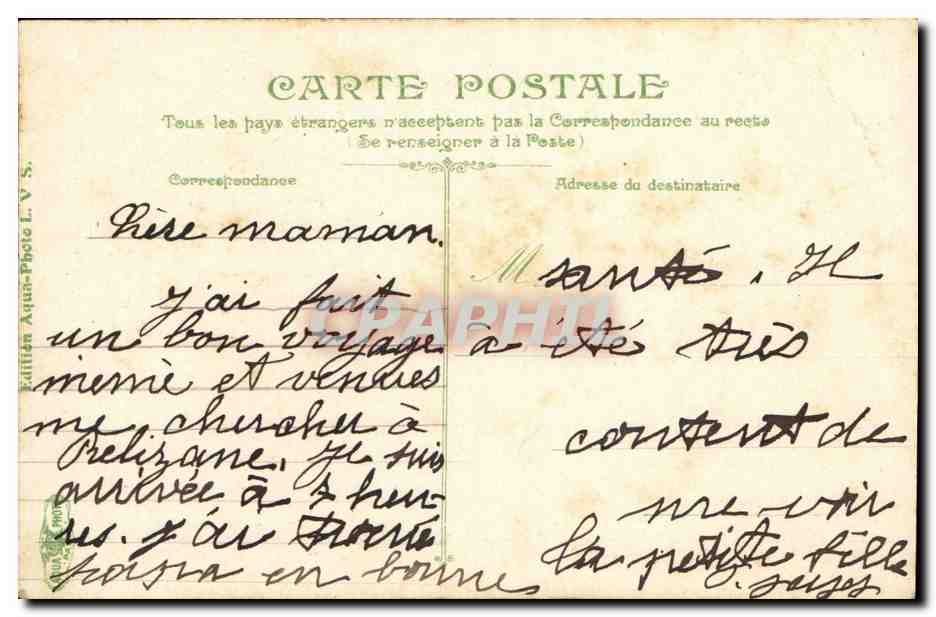 CARTE POSTALE
Tous les pays étrangers n'acceptent pas la Correspondance au recto
(Se renseigner à la Poste)
Correspondance
Adresse du destinataire
Edition Aqua-Photo L. V. S.
Chère maman.
J'ai fait
un bon voyage
memé et venues
me chercher à
Relizane. Je suis
arrivée à 7 heu-
res. J'ai trouvé
papa en bonne
M
santé. Il
à été très
content de
me voir
la petite fille
CPAPHIL